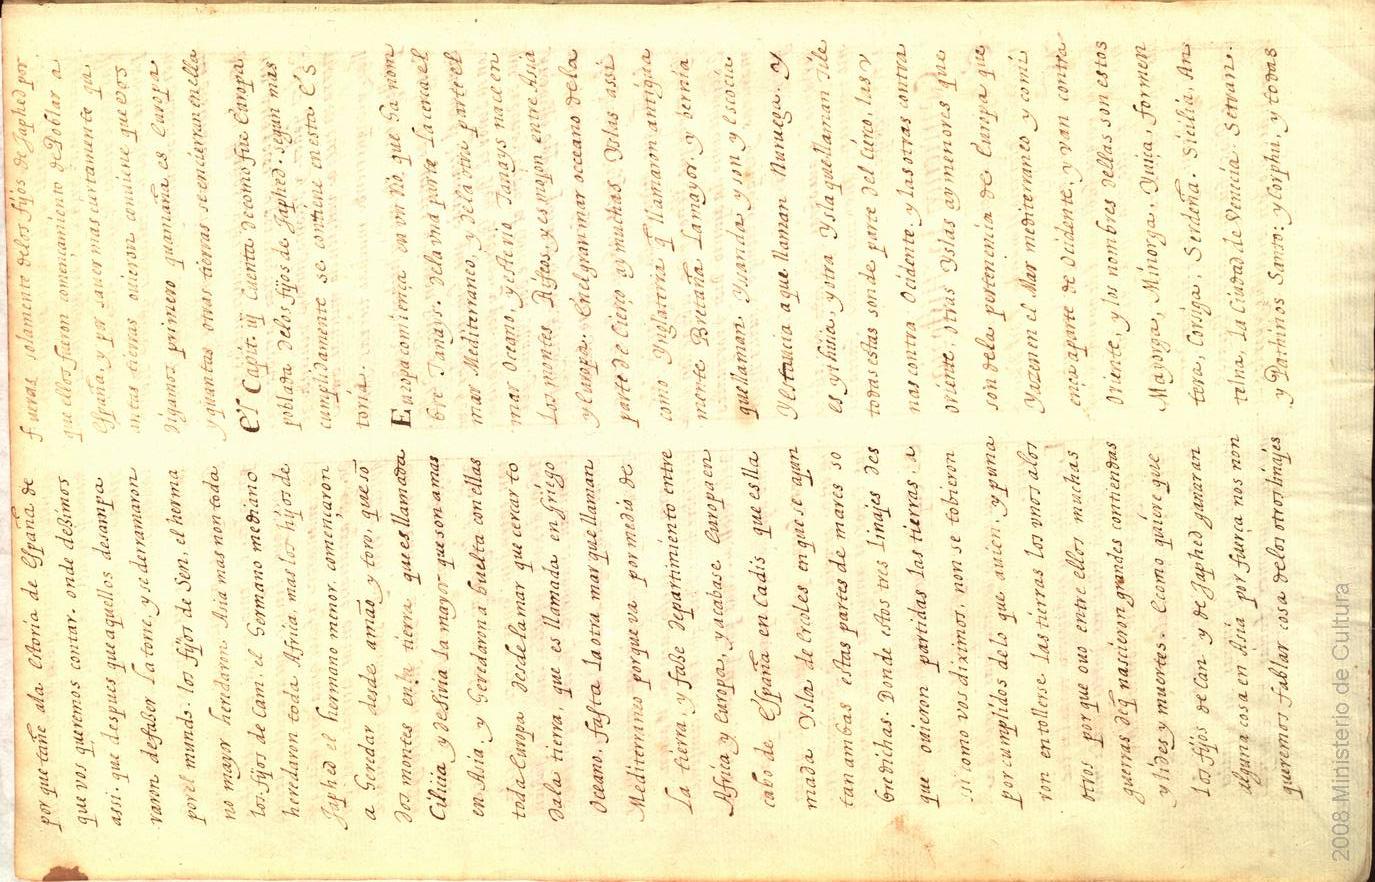 por que tañe ala estoria de España de
que vos queremos contar. onde dezimos
assi. que despues que aquellos desampa
raron defazer la torre, y se derramaron
por el mundo. los fijos de Sen, el herma
no mayor heredaron Asia mas non toda
los fijos de Cam. el Hermano mediano
heredaron toda Africa, mas los hijos de
Japhed el hermano menor. començaron
a heredar desde amão y toro, que sõ
dos montes en la tierra que es llamada
Ciliçia y de Siria la mayor que son amas
en Asia, y heredaron a buelta con ellas
toda Europa desde la mar que cerca to
dala tierra, que es llamada en Griego
Oceano. fasta la otra mar que llaman
Mediterraneo porque va por medio de
la tierra y faze departimiento entre
Africa y Europa, y acabase Europa en
cabo de España en Cadis que es lla
mada Ysla de Ercoles en que se ayun
tan ambas estas partes de mares so
bredichas. Donde estos tres linajes des
que ovieron partidas las tierras. a
si como vos diximos. non se tobieron
por cumplidos delo que avien. y puna
ron en tollerse las tierras los unos alos
otros por que ovo entre ellos muchas
guerras deq̃ nascieron grandes contiendas
y lides y muertes. E como quiere que
los fijos de Can y de Japhed ganaran
alguna cosa en Asia por fuerça nos non
queremos fablar cosa delos otros linajes
fueras solamente delos fijos de Japhed por
que ellos fueron començamiento de Poblar a
España, y por saver mas ciertamente qa
antas tierras ovieron conviene que vos
digamos primero quamaña es Europa
y quantas otras tierras se encierran en ella
El Capit. iij Cuenta de como fue Europa
poblada delos fijos de Japhed. segun mas
cumplidamente se contiene en esta es
toria.
Europa comiença en un rio que ha nom
bre Tanays. Dela una parte la cerca el
mar Mediterraneo, y dela otra parte el
mar Oceano, y este rio Tanays nace en
los montes Rifeos, y es mojon entre Asia
y Europa. En el gran mar oceano dela
parte de Cierço ay muchas Yslas assi
como Ynglaterra q̃ llamaron antigua
mente Bretaña la mayor. y vernia
que llaman Yrlanda y ion y escocia
Y el tancia a que llaman Nuruega. y
es ythiçia, y otra Ysla que llaman Tile
todas estas son de parte del Cierço. las v
nas contra Ocidente. y las otras contra
oriente. Otras Yslas ay menores que
son dela pertenencia de Europa que
Yazen en el Mar mediterraneo y comi
ença aparte de Ocidente, y van contra
Oriente, y los nombres dellas son estos
Mayorga, Minorga, Yviça, Formen
tera, Coriga, Serdeña. Sicilia. An
telna, la Ciudad de Veneçia. Setran.
y Pathinos Santo: y Jorphu, y todas